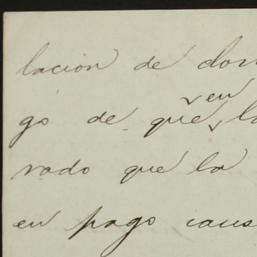 lacion de don
en
go de que la
rado que la
en pago caus